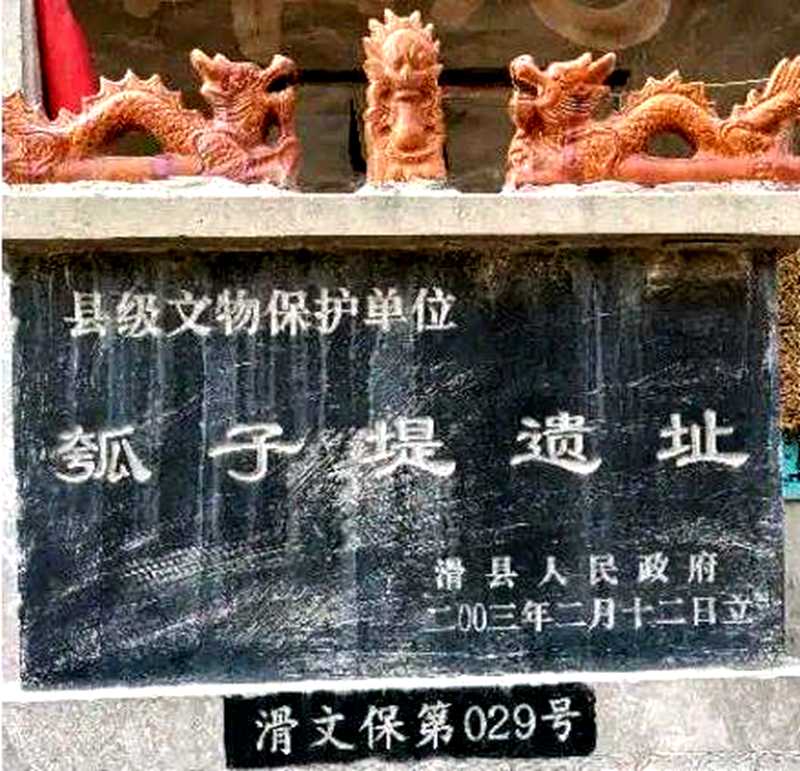 县级文物保护单位
瓠子堤遗址
滑县人民政府
二00三年二月十二日立
滑文保第029号